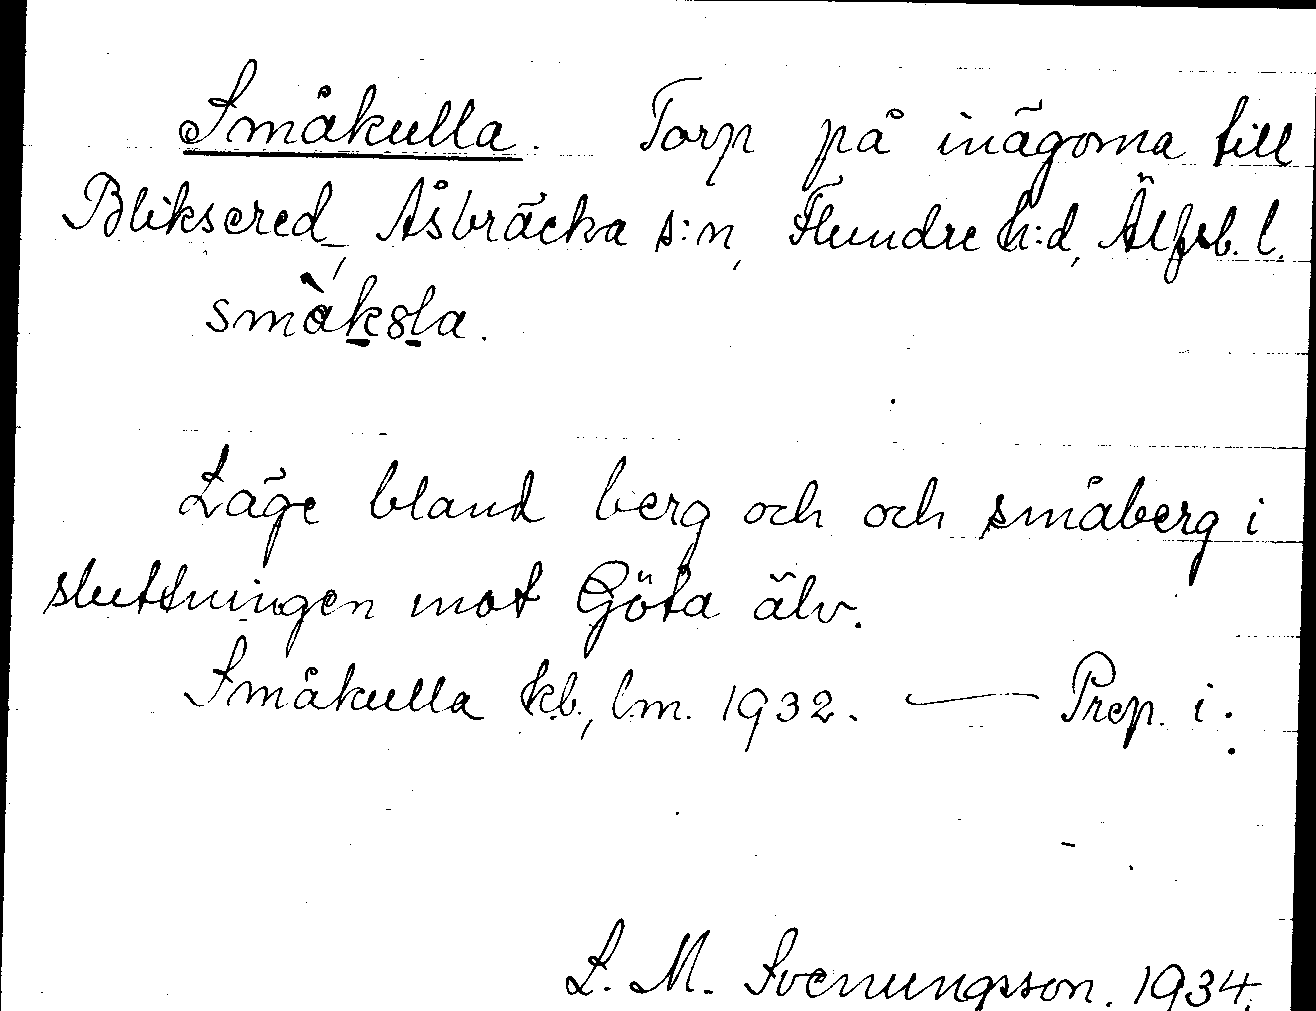 Småkulla. Torp på inägorna till
Bliksered, Åsbräcka s:n, Flundre h:d, Älfsb. l.
småk8la.
Läge bland berg och och småberg i
sluttningen mot Göta älv.
Småkulla kb., lm. 1932. — Prep. i.
L. M. Svenungsson. 1934.